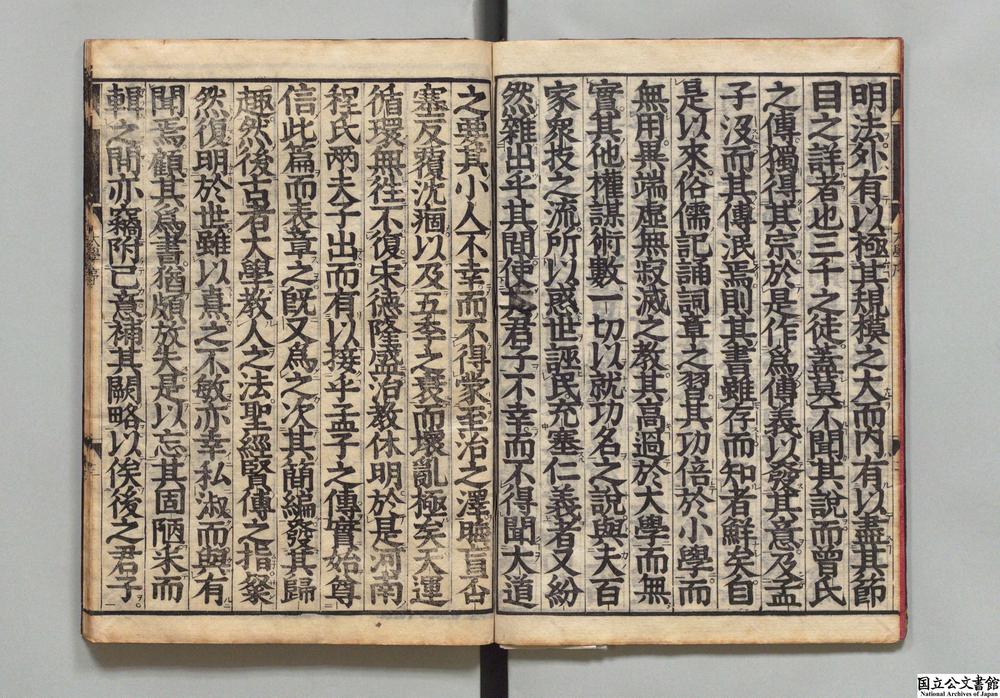 明法外有以極其規模之大而内有以盡其節
目之詳者也三千之徒蓋莫不聞其說而曾氏
之傳獨得其宗於是作爲傳義以發其意及孟
子沒而其傳泯焉則其書雖存而知者鮮矣自
是以來俗儒記誦詞章之習其功倍於小學而
無用異端虛無寂滅之教其高過於大學而無
實其他權謀術數一切以就功名之說與夫百
家衆技之流所以惑世誣民充塞仁義者又紛
然雜出乎其間使其君子不幸而不得聞大道
之要其小人不幸而不得蒙至治之澤晦盲否
塞反覆沈痼以及五季之衰而壞亂極矣天運
循環無往不復宋德隆盛治教休明於是河南
程氏兩夫子出而有以接乎孟子之傳實始尊
信此篇而表章之旣又爲之次其簡編發其歸
趣然後古者大學教人之法聖經賢傳之指粲
然復明於世雖以熹之不敏亦幸私淑而與有
聞焉顧其爲書猶頗放失是以忘其固陋采而
輯之間亦竊附己意補其闕略以俟後之君子
国立公文書館
National Archives of Japan